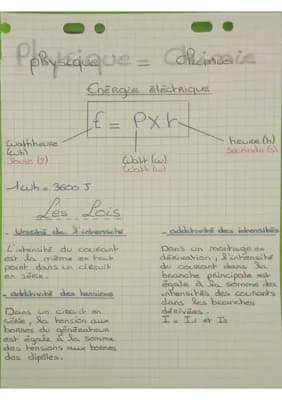 Physique = Chimie
Energie électrique
E = P x t
Wattheure (Wh)
Joule (J)
Watt (W)
Watt (W)
heure (h)
Seconde (s)
1 Wh = 3600 J
Les Lois
- Unicité de l'intensité
L'intensité du courant
est la même en tout
point dans un circuit
en série.
- additivité des tensions
Dans un circuit en
série, la tension aux
bornes du générateur
est égale à la somme
des tensions aux bornes
des dipôles.
- additivité des intensités
Dans un montage en
dérivation, l'intensité
du courant dans la
branche principale est
égale à la somme des
intensités des courants
dans les branches
dérivées.
I = I1 et I2